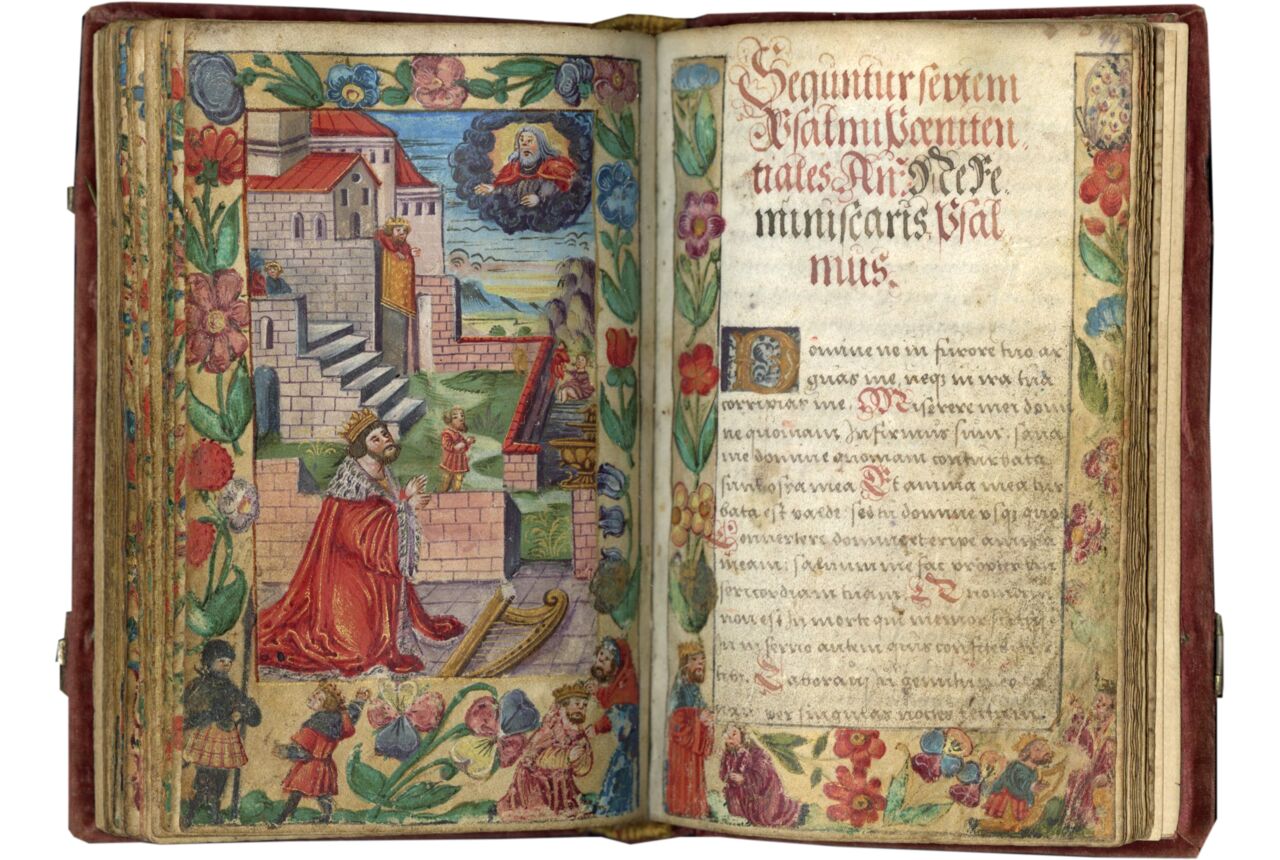 Sequntur septem
Psalmi Pœniten
tiales An: Ne Re
miniscaris, Psal
mus.
Domine ne in furore tuo ar
guas me, neqȝ in ira tua
corripias me. Miserere mei domi
ne quoniam Infirmus sum: sana
me domine quoniam conturbata
sunt ossa mea Et anima mea tur
bata est valde: sed tu domine vsqȝ quo
Convertere domine et eripe anima
meam: salvum me fac propter mi
sericordiam tuam. Quoniam
non est In morte qui memor sit tui
in inferno autem quis confitebitur
tibi. Laboravi in gemitu meo la
per singulas noctes lectum